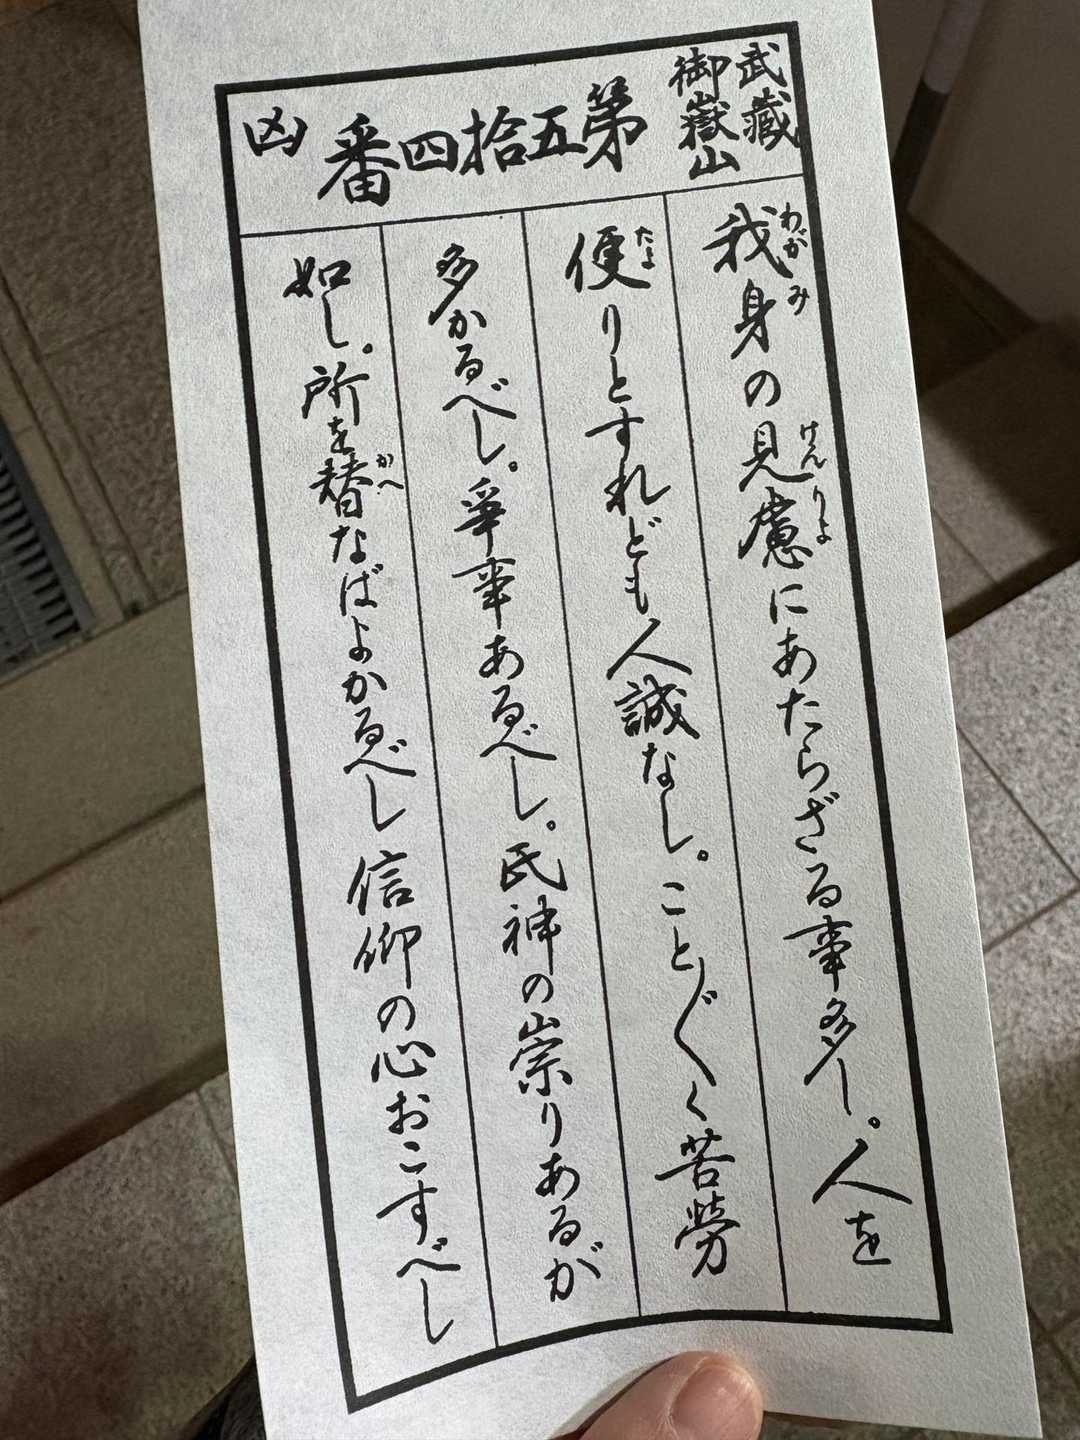 武藏
御嶽山
第五拾四番
凶
我身の見慮にあたらざる事多し。人を
わがみ
けんりよ
便りとすれども人誠なし。こと〴〵く苦勞
たよ
多かるべし。爭事あるべし。氏神の崇りあるが
如し。所を替なばよかるべし信仰の心おこすべし
かへ